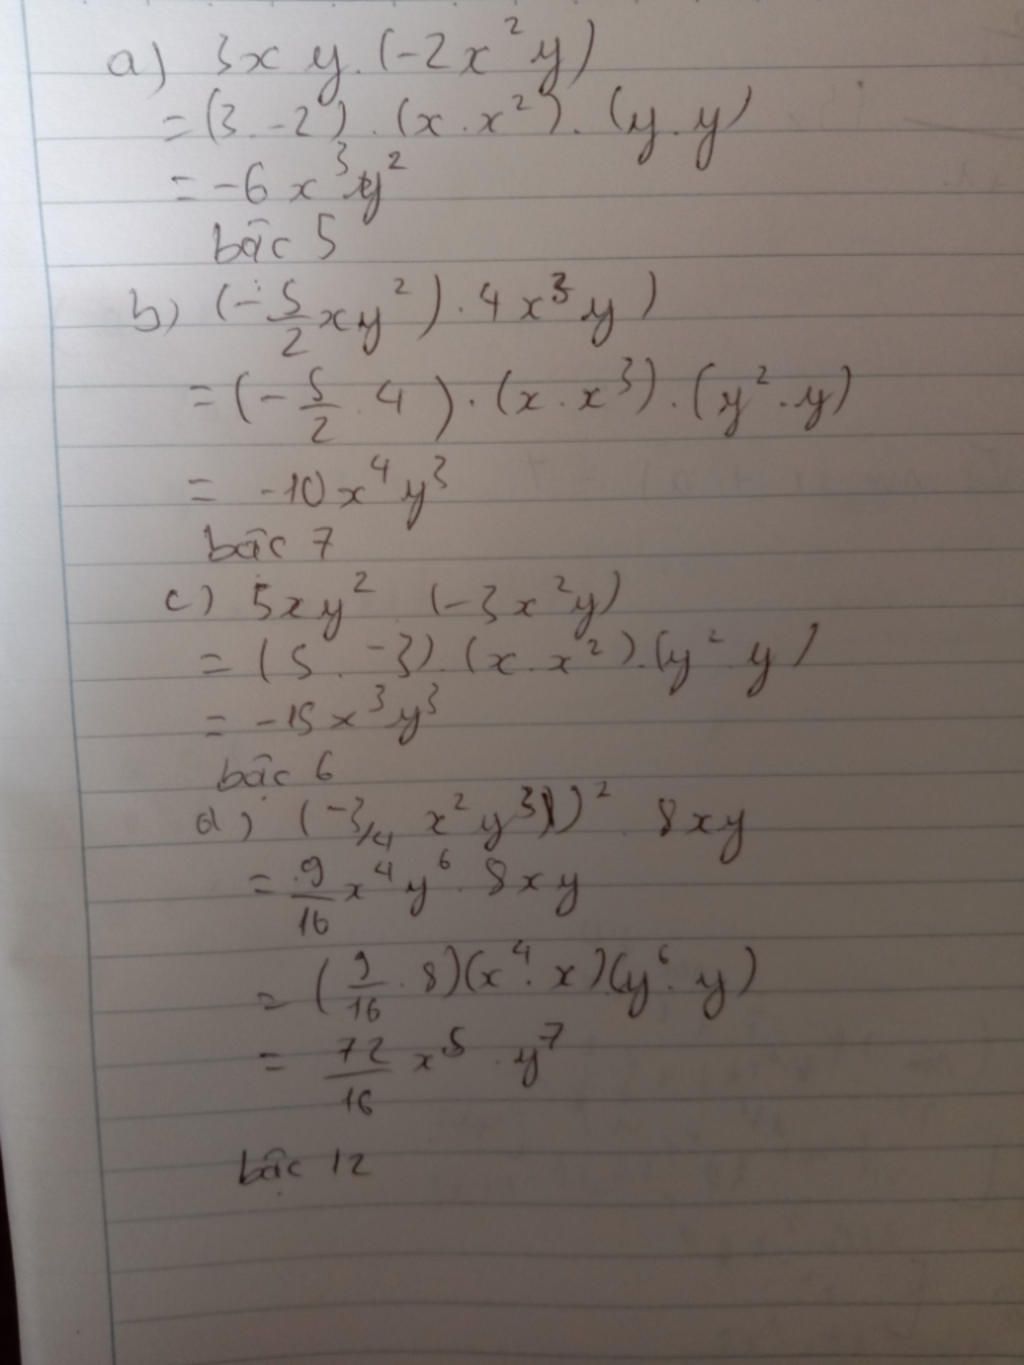 a) 3x y. (-2x²y)
= (3.-2). (x.x²). (y.y)
= -6x³y²
bậc 5
b) (-5/2xy²). 4x³y)
= (-5/2.4).(x.x³).(y².y)
= -10x⁴y³
bậc 7
c) 5xy² (-3x²y)
= (5.-3).(x.x²).(y².y)
= -15x³y³
bậc 6
d) (-3/4 x²y³)² . 8xy
= 9/16x⁴y⁶.8xy
= (9/16.8)(x⁴.x)(y⁶.y)
= 72/16 x⁵.y⁷
bậc 12